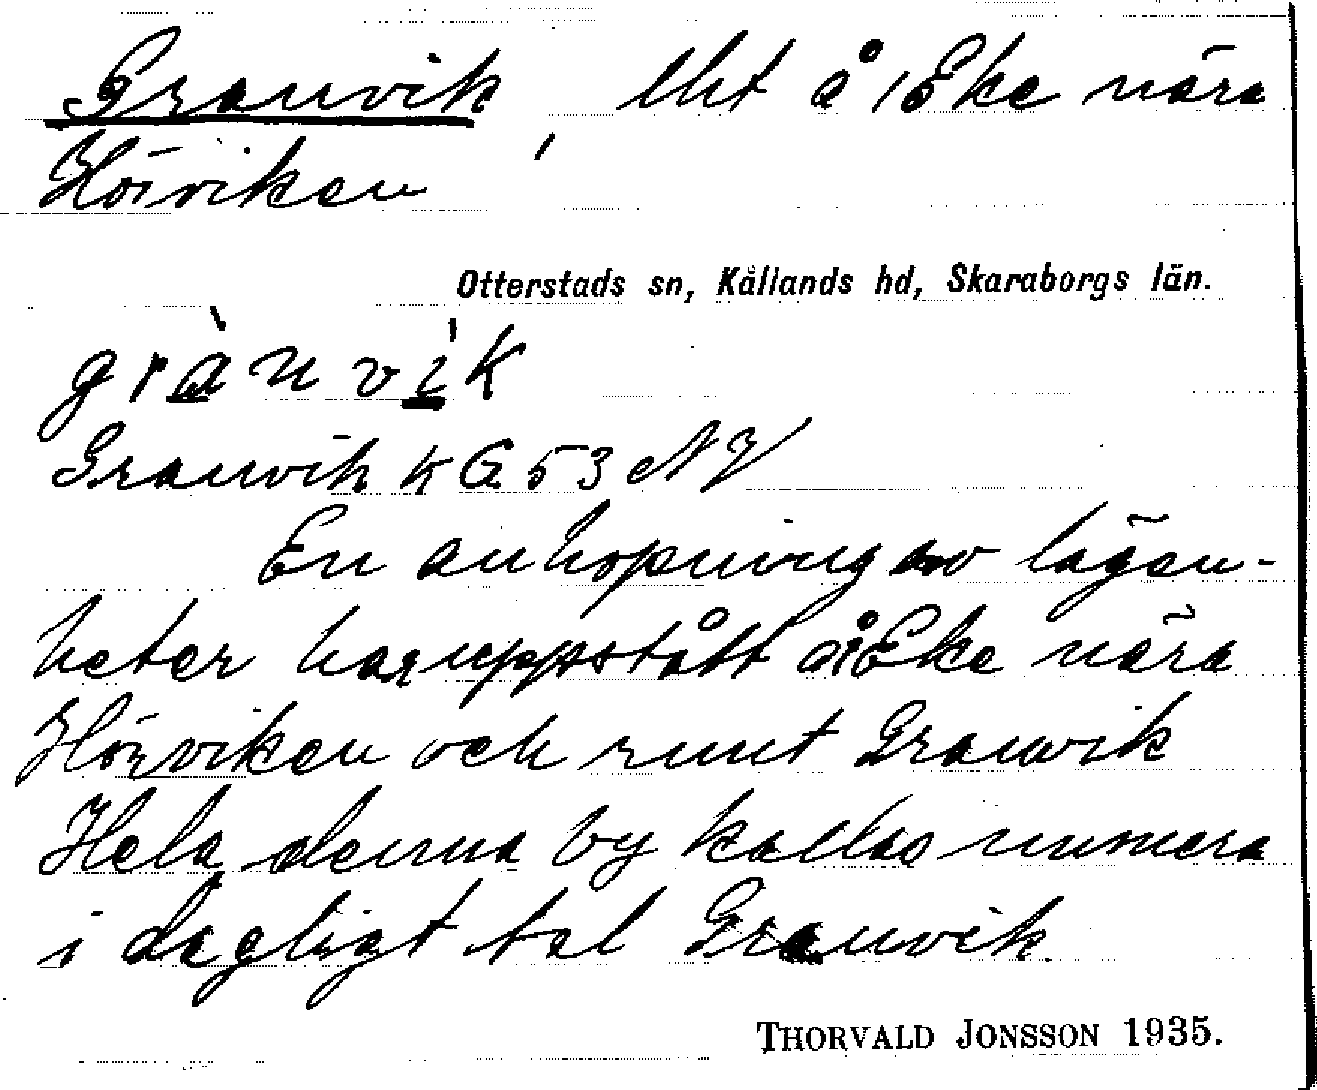 Granvik, lht å 1 Eke nära
Hörviken
Otterstads sn, Kållands hd, Skaraborgs län.
grànvík
Granvik KG 53 NV
En anhopning av lägen-
heter har uppstått å 1 Eke nära
Hörviken och runt Granvik
Hela denna by kallas numera
i dagligt tal Granvik.
THORVALD JONSSON 1935.